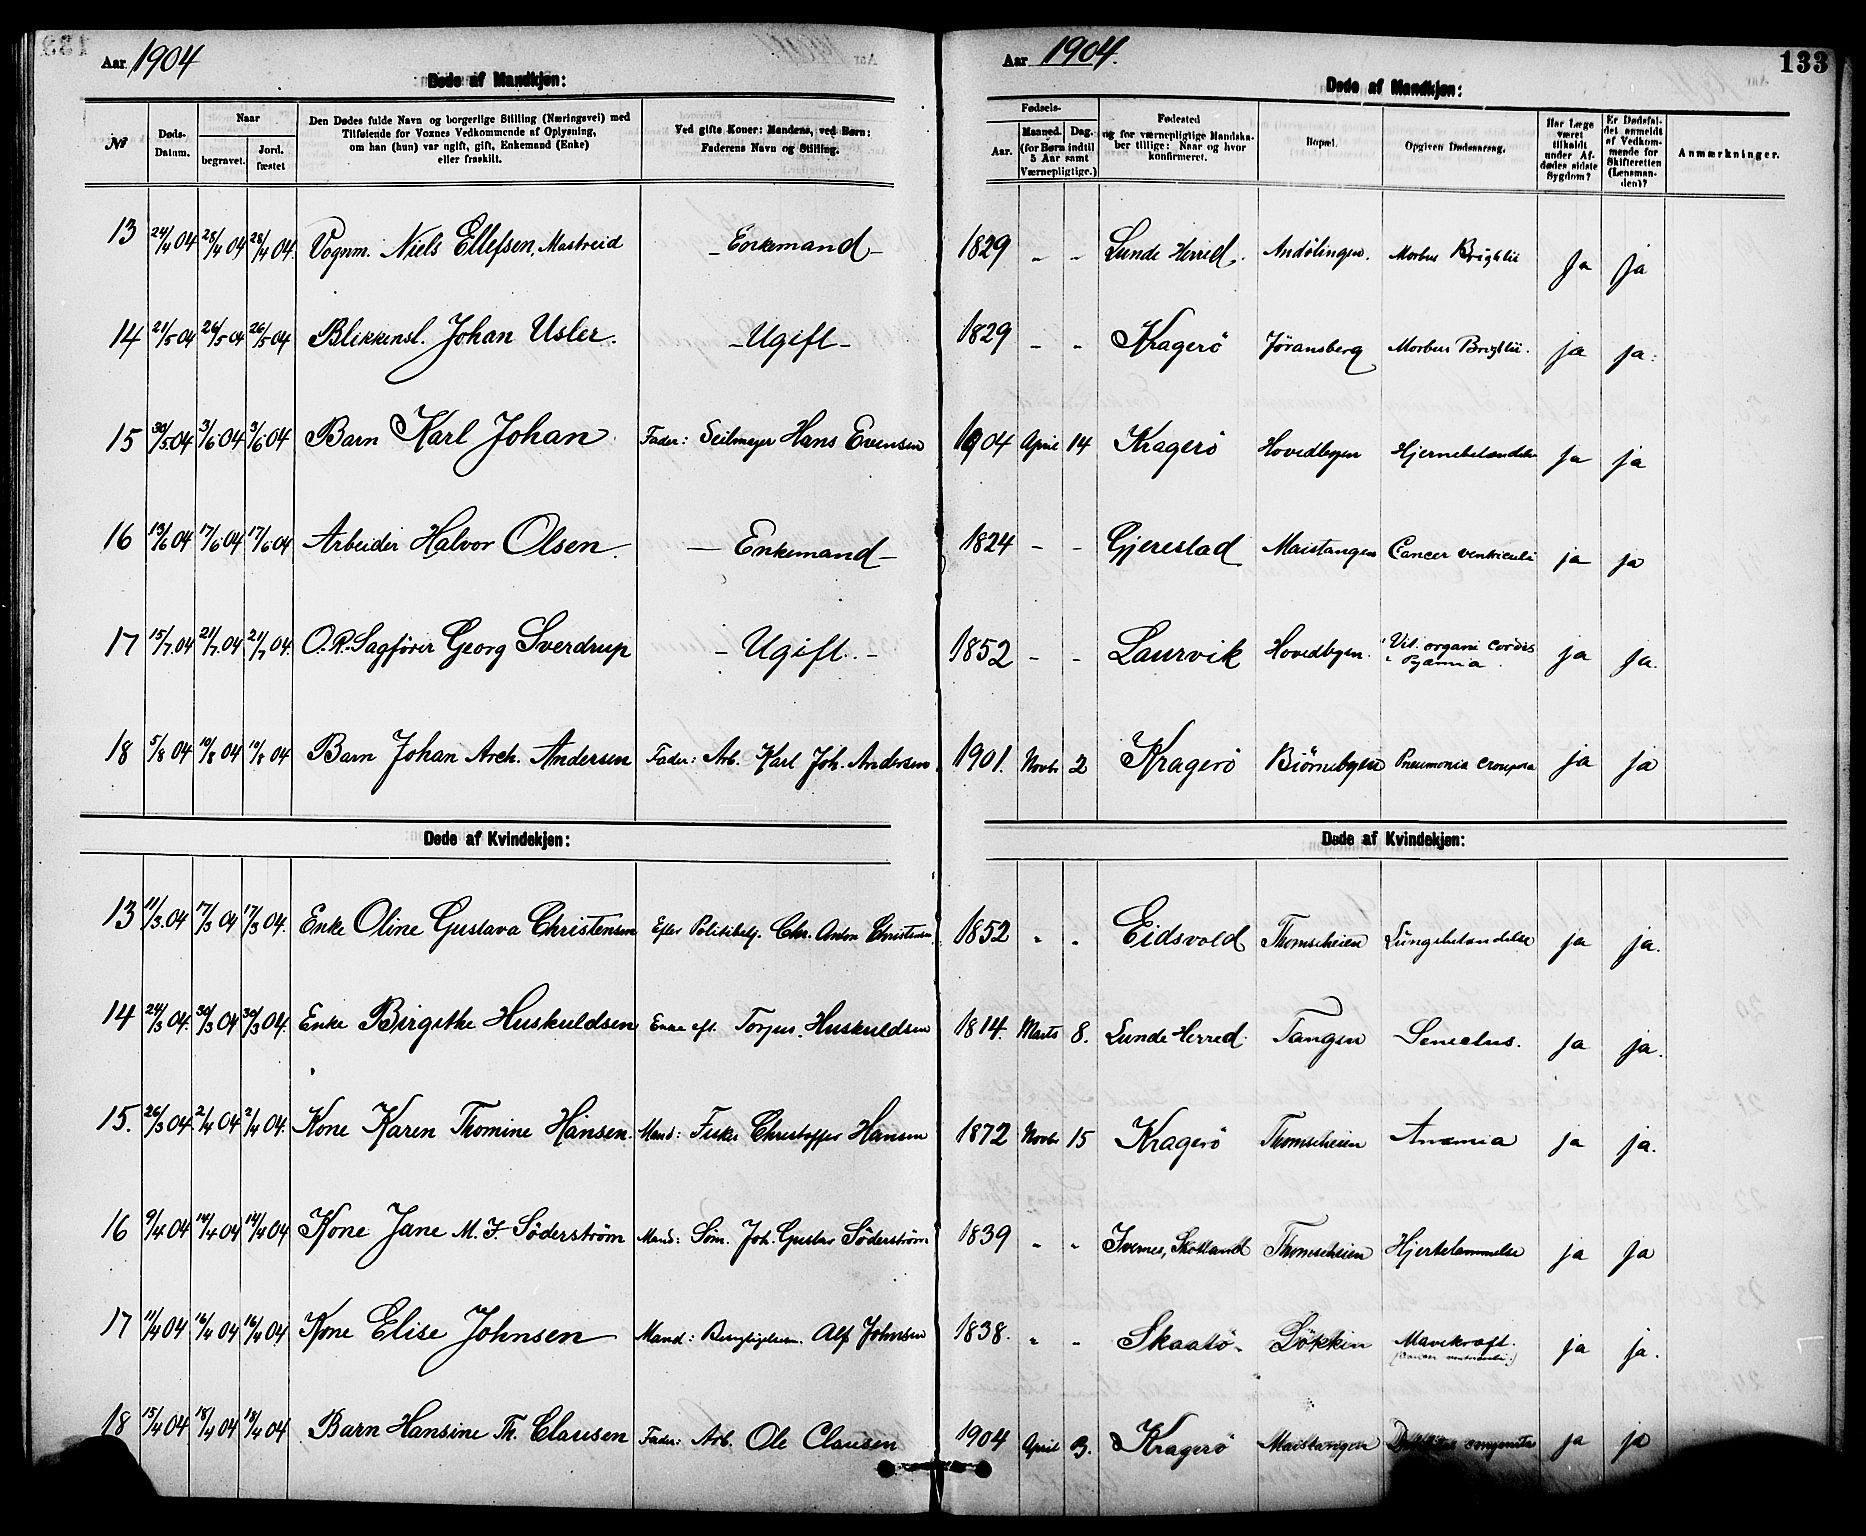 Aar 1904
Døde af Mandkjøn:
№
Døds-Datum.
Naar
begravet.
Jord. fæstet
Den Dødes fulde Navn og borgerlige Stilling (Næringsvei) med
Tilføiende for Voxnes Vedkommende af Oplysning,
om han (hun) var ugift, gift, Enkemand (Enke)
eller fraskilt.
Ved gifte Koner: Mandens, ved Børn:
Faderens Navn og Stilling.
13 24/4 04 28/4 04 28/4 04. Vognm. Niels Ellefsen, - Enkemand -
14 21/5 04 26/5 04 26/5 04 Blikkensl. Johan Usler. - Ugift -
15 30/5 04 3/6 04 3/6 04 Barn Karl Johan Fader: Seilmager Hans Evensen
16 13/6 04 17/6 04 17/6 04 Arbeider Halvor Olsen. - Enkemand -
17 15/7 04 21/7 04 21/7 04. O.R.Sagfører Georg Sverdrup - Ugift. -
18 5/8 04 10/8 04 10/8 04 Barn Johan Arch. Andersen Fader: Arb. Karl Joh. Andersen
Døde af Kvindekjøn:
13 11/3 04 17/3 04 17/3 04. Enke Oline Gustava Christensen Efter Politibetj. Chr. Anton Christensen
14 24/3 04. 30/3 04 30/3 04. Enke Birgithe Huskuldsen Enke eft. Torjus Huskuldsen
15. 26/3 04 2/4 04 2/4 04. Kone Karen Thomine Hansen. Mand: Fisker Christoffer Hansen
16 9/4 04 14/4 04 14/4 04 Kone Jane M. F. Söderström Mand: Søm. Joh. Gustav Söderström
17 11/4 04 16/4 04 16/4 04 Kone Elise Johnsen Mand: Alf Johnsen
18 15/4 04 18/4 04 18/4 04 Barn Hansine Th. Clausen Fader: Arb. Ole Clausen
Aar 1904.
133
Døde af Mandkjøn:
Fødsels-
Aar.
Maaned. Dag.
(for Børn indtil
5 Aar samt
Værnepligtige.)
Fødested
og for værnepligtige Mandska-
ber tillige: Naar og hvor
konfirmeret.
Bopæl.
Opgiven Dødsaarsag.
Har Læge
været
tilkaldt
under Af-
dødes sidste
Sygdom?
Er Dødsfal-
det anmeldt
af Vedkom-
mende for
Skifteretten
(Lensman-
den)?
Anmærkninger.
1829 - - Lunde Herred. Andølingen. Morbus Brightii Ja ja
1829 - - Kragerö Jøransberg Morbus Brightii. ja ja.
1904 April 14 Kragerö Hovedbyen Hjernebetændelse ja ja
1824 - - Gjerestad Maistangen Cancer ventriculi ja ja
1852 - - Laurvik Hovedbyen. Vit. organi cordis
Pyæmia. ja ja.
1901. Novbr 2 Kragerö Biörnebyen Pneumonia crouposa ja ja
Døde af Kvindekjøn:
1852 " " Eidsvold Thomseheien Lungebetændelse ja ja.
1814. Marts 8. Lunde Herred. Tangen Senectus. ja ja.
1872 Novbr 15 Kragerö Thomseheien Anæmia ja ja.
1839 " " Ivernes, Skotland Thomseheien Hjertelammelse ja ja
1838. " - Skaatö. Lökken Mavekræft.
(Cancer ventriculi.) ja ja.
1904 April 3. Kragerö Maistangen congenita ja ja